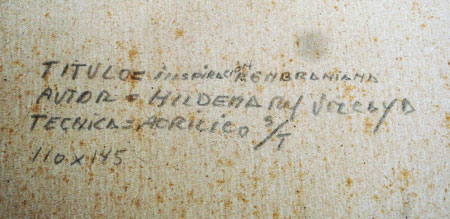 TITULO = inspiración REMBRANIANA
AUTOR = HILDEMARY VIZCAYA
TECNICA = ACRILICO S/T
110 x 145